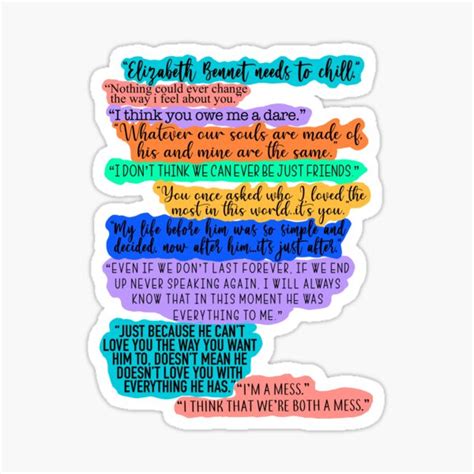 "Elizabeth Bennet needs to chill."
"Nothing could ever change
the way i feel about you."
"I think you owe me a dare."
"Whatever our souls are made of,
his and mine are the same."
"I DON'T THINK WE CAN EVER BE JUST FRIENDS."
"You once asked who I loved the
most in this world...it's you.
"My life before him was so simple and
decided, now after him...it's just after.
"EVEN IF WE DON'T LAST FOREVER, IF WE END
UP NEVER SPEAKING AGAIN, I WILL ALWAYS
KNOW THAT IN THIS MOMENT HE WAS
EVERYTHING TO ME."
"JUST BECAUSE HE CAN'T
LOVE YOU THE WAY YOU WANT
HIM TO, DOESN'T MEAN HE
DOESN'T LOVE YOU WITH
EVERYTHING HE HAS."
"I'M A MESS."
"I THINK THAT WE'RE BOTH A MESS."